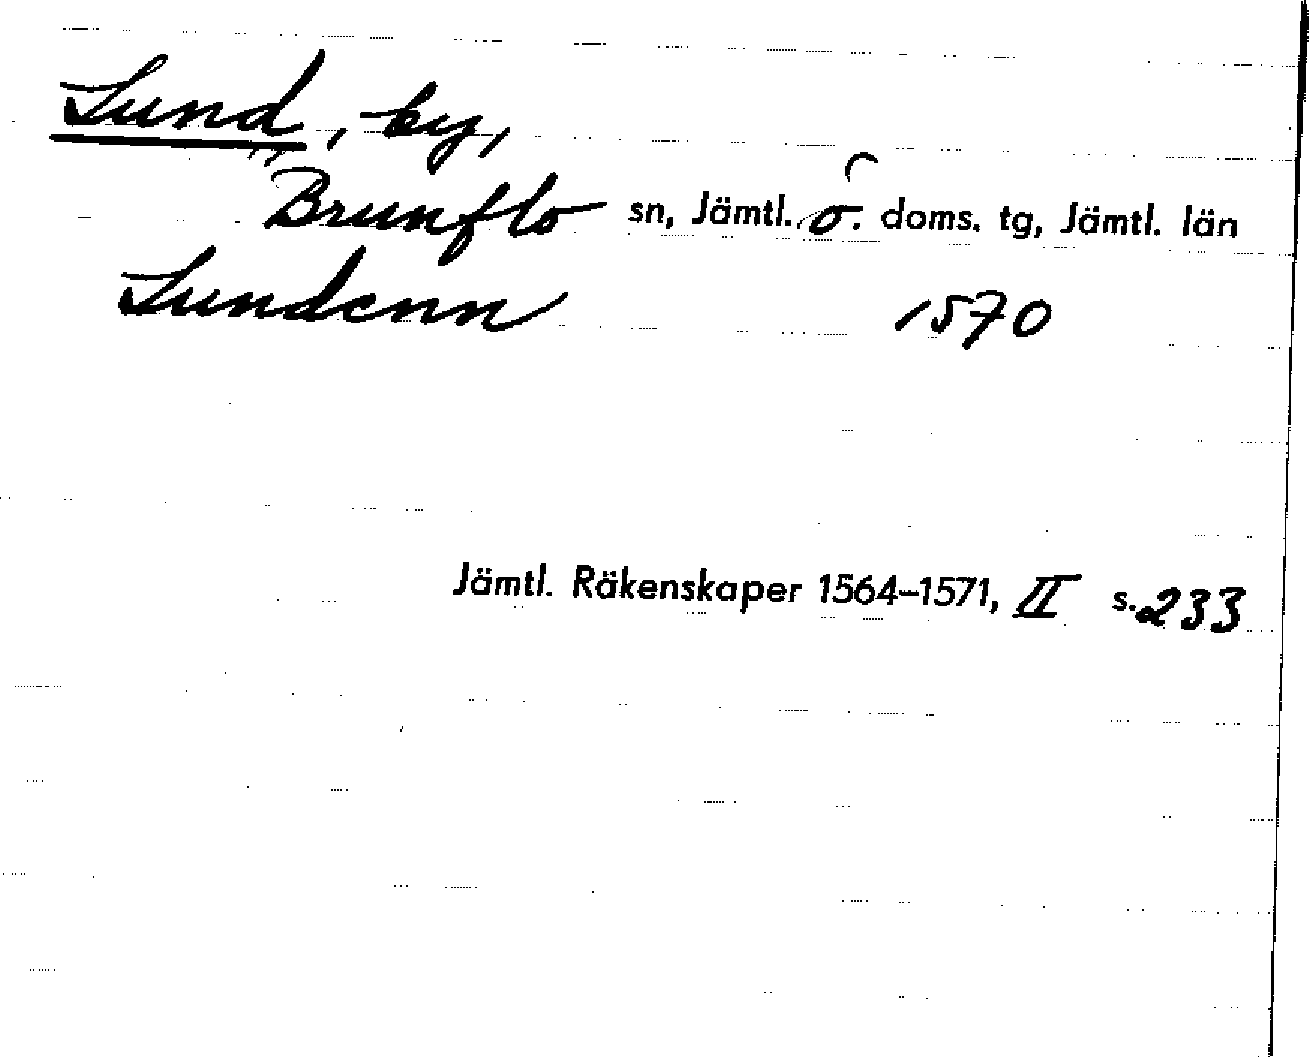 Lund, by,
Brunflo sn, Jämtl. ö. doms. tg, Jämtl. län
Lundenn 1570
Jämtl. Räkenskaper 1564-1571, II s. 233